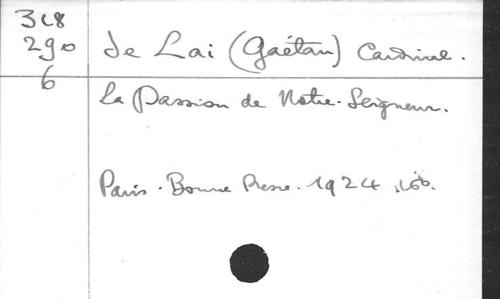 318
290
6
de Lai (Gaétan) Cardinal.
La Passion de Notre-Seigneur.
Paris. Bonne Presse. 1924,